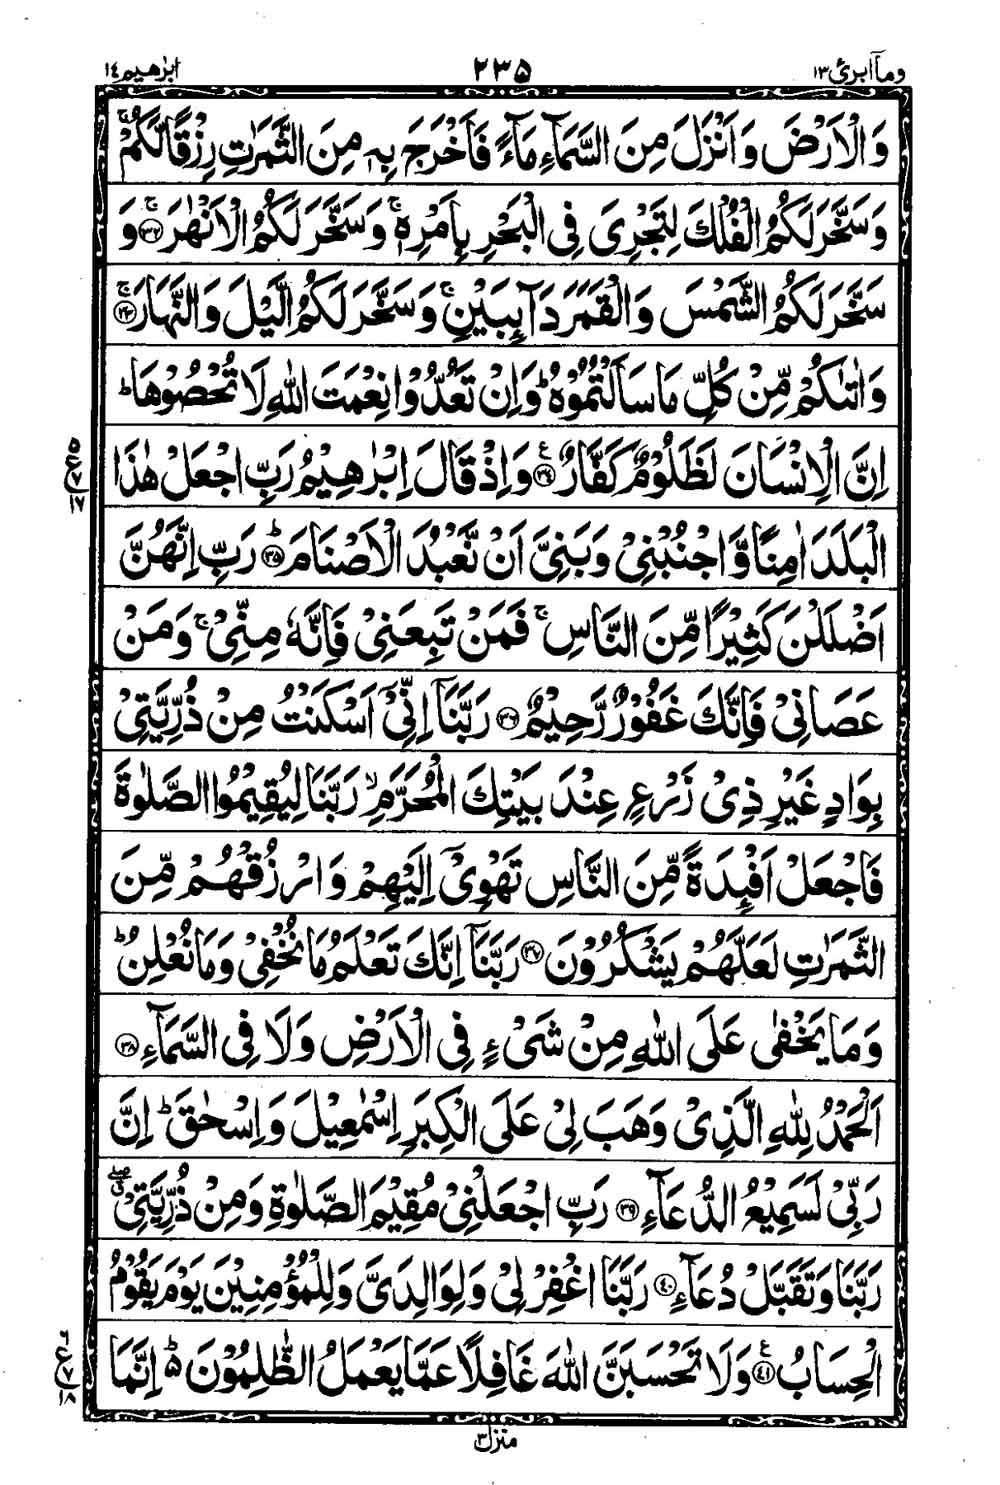 وماۤ ابرئ ١٣ ٢٣٥ ابرٰهیم ١٤
وَالْاَرْضَ وَاَنْزَلَ مِنَ السَّمَآءِ مَآءً فَاَخْرَجَ بِهٖ مِنَ الثَّمَرٰتِ رِزْقًا لَّكُمْ ۚ
وَسَخَّرَ لَكُمُ الْفُلْكَ لِتَجْرِیَ فِی الْبَحْرِ بِاَمْرِهٖ ۚ وَسَخَّرَ لَكُمُ الْاَنْهٰرَ ۚ ﴿۳۲﴾ وَ
سَخَّرَ لَكُمُ الشَّمْسَ وَالْقَمَرَ دَآئِبَیْنِ ۚ وَسَخَّرَ لَكُمُ الَّیْلَ وَالنَّهَارَ ۚ ﴿۳۳﴾
وَاٰتٰىكُمْ مِّنْ كُلِّ مَا سَاَلْتُمُوْهُ ؕ وَاِنْ تَعُدُّوْا نِعْمَتَ اللّٰهِ لَا تُحْصُوْهَا ؕ
اِنَّ الْاِنْسَانَ لَظَلُوْمٌ كَفَّارٌ ﴿۳۴﴾ ع وَاِذْ قَالَ اِبْرٰهِیْمُ رَبِّ اجْعَلْ هٰذَا
۵ ع ۷ ۱۷
الْبَلَدَ اٰمِنًا وَّاجْنُبْنِیْ وَبَنِیَّ اَنْ نَّعْبُدَ الْاَصْنَامَ ؕ ﴿۳۵﴾ رَبِّ اِنَّهُنَّ
اَضْلَلْنَ كَثِیْرًا مِّنَ النَّاسِ ۚ فَمَنْ تَبِعَنِیْ فَاِنَّهٗ مِنِّیْ ۚ وَمَنْ
عَصَانِیْ فَاِنَّكَ غَفُوْرٌ رَّحِیْمٌ ﴿۳۶﴾ رَبَّنَاۤ اِنِّیْۤ اَسْكَنْتُ مِنْ ذُرِّیَّتِیْ
بِوَادٍ غَیْرِ ذِیْ زَرْعٍ عِنْدَ بَیْتِكَ الْمُحَرَّمِ ۙ رَبَّنَا لِیُقِیْمُوا الصَّلٰوةَ
فَاجْعَلْ اَفْئِدَةً مِّنَ النَّاسِ تَهْوِیْۤ اِلَیْهِمْ وَارْزُقْهُمْ مِّنَ
الثَّمَرٰتِ لَعَلَّهُمْ یَشْكُرُوْنَ ﴿۳۷﴾ رَبَّنَاۤ اِنَّكَ تَعْلَمُ مَا نُخْفِیْ وَمَا نُعْلِنُ ؕ
وَمَا یَخْفٰی عَلَی اللّٰهِ مِنْ شَیْءٍ فِی الْاَرْضِ وَلَا فِی السَّمَآءِ ﴿۳۸﴾
اَلْحَمْدُ لِلّٰهِ الَّذِیْ وَهَبَ لِیْ عَلَی الْكِبَرِ اِسْمٰعِیْلَ وَاِسْحٰقَ ؕ اِنَّ
رَبِّیْ لَسَمِیْعُ الدُّعَآءِ ﴿۳۹﴾ رَبِّ اجْعَلْنِیْ مُقِیْمَ الصَّلٰوةِ وَمِنْ ذُرِّیَّتِیْ ۖۗ
رَبَّنَا وَتَقَبَّلْ دُعَآءِ ﴿۴۰﴾ رَبَّنَا اغْفِرْ لِیْ وَلِوَالِدَیَّ وَلِلْمُؤْمِنِیْنَ یَوْمَ یَقُوْمُ
الْحِسَابُ ﴿۴۱﴾ ع وَلَا تَحْسَبَنَّ اللّٰهَ غَافِلًا عَمَّا یَعْمَلُ الظّٰلِمُوْنَ ؕ۬ اِنَّمَا
۶ ع ۷ ۱۸
منزل ٣